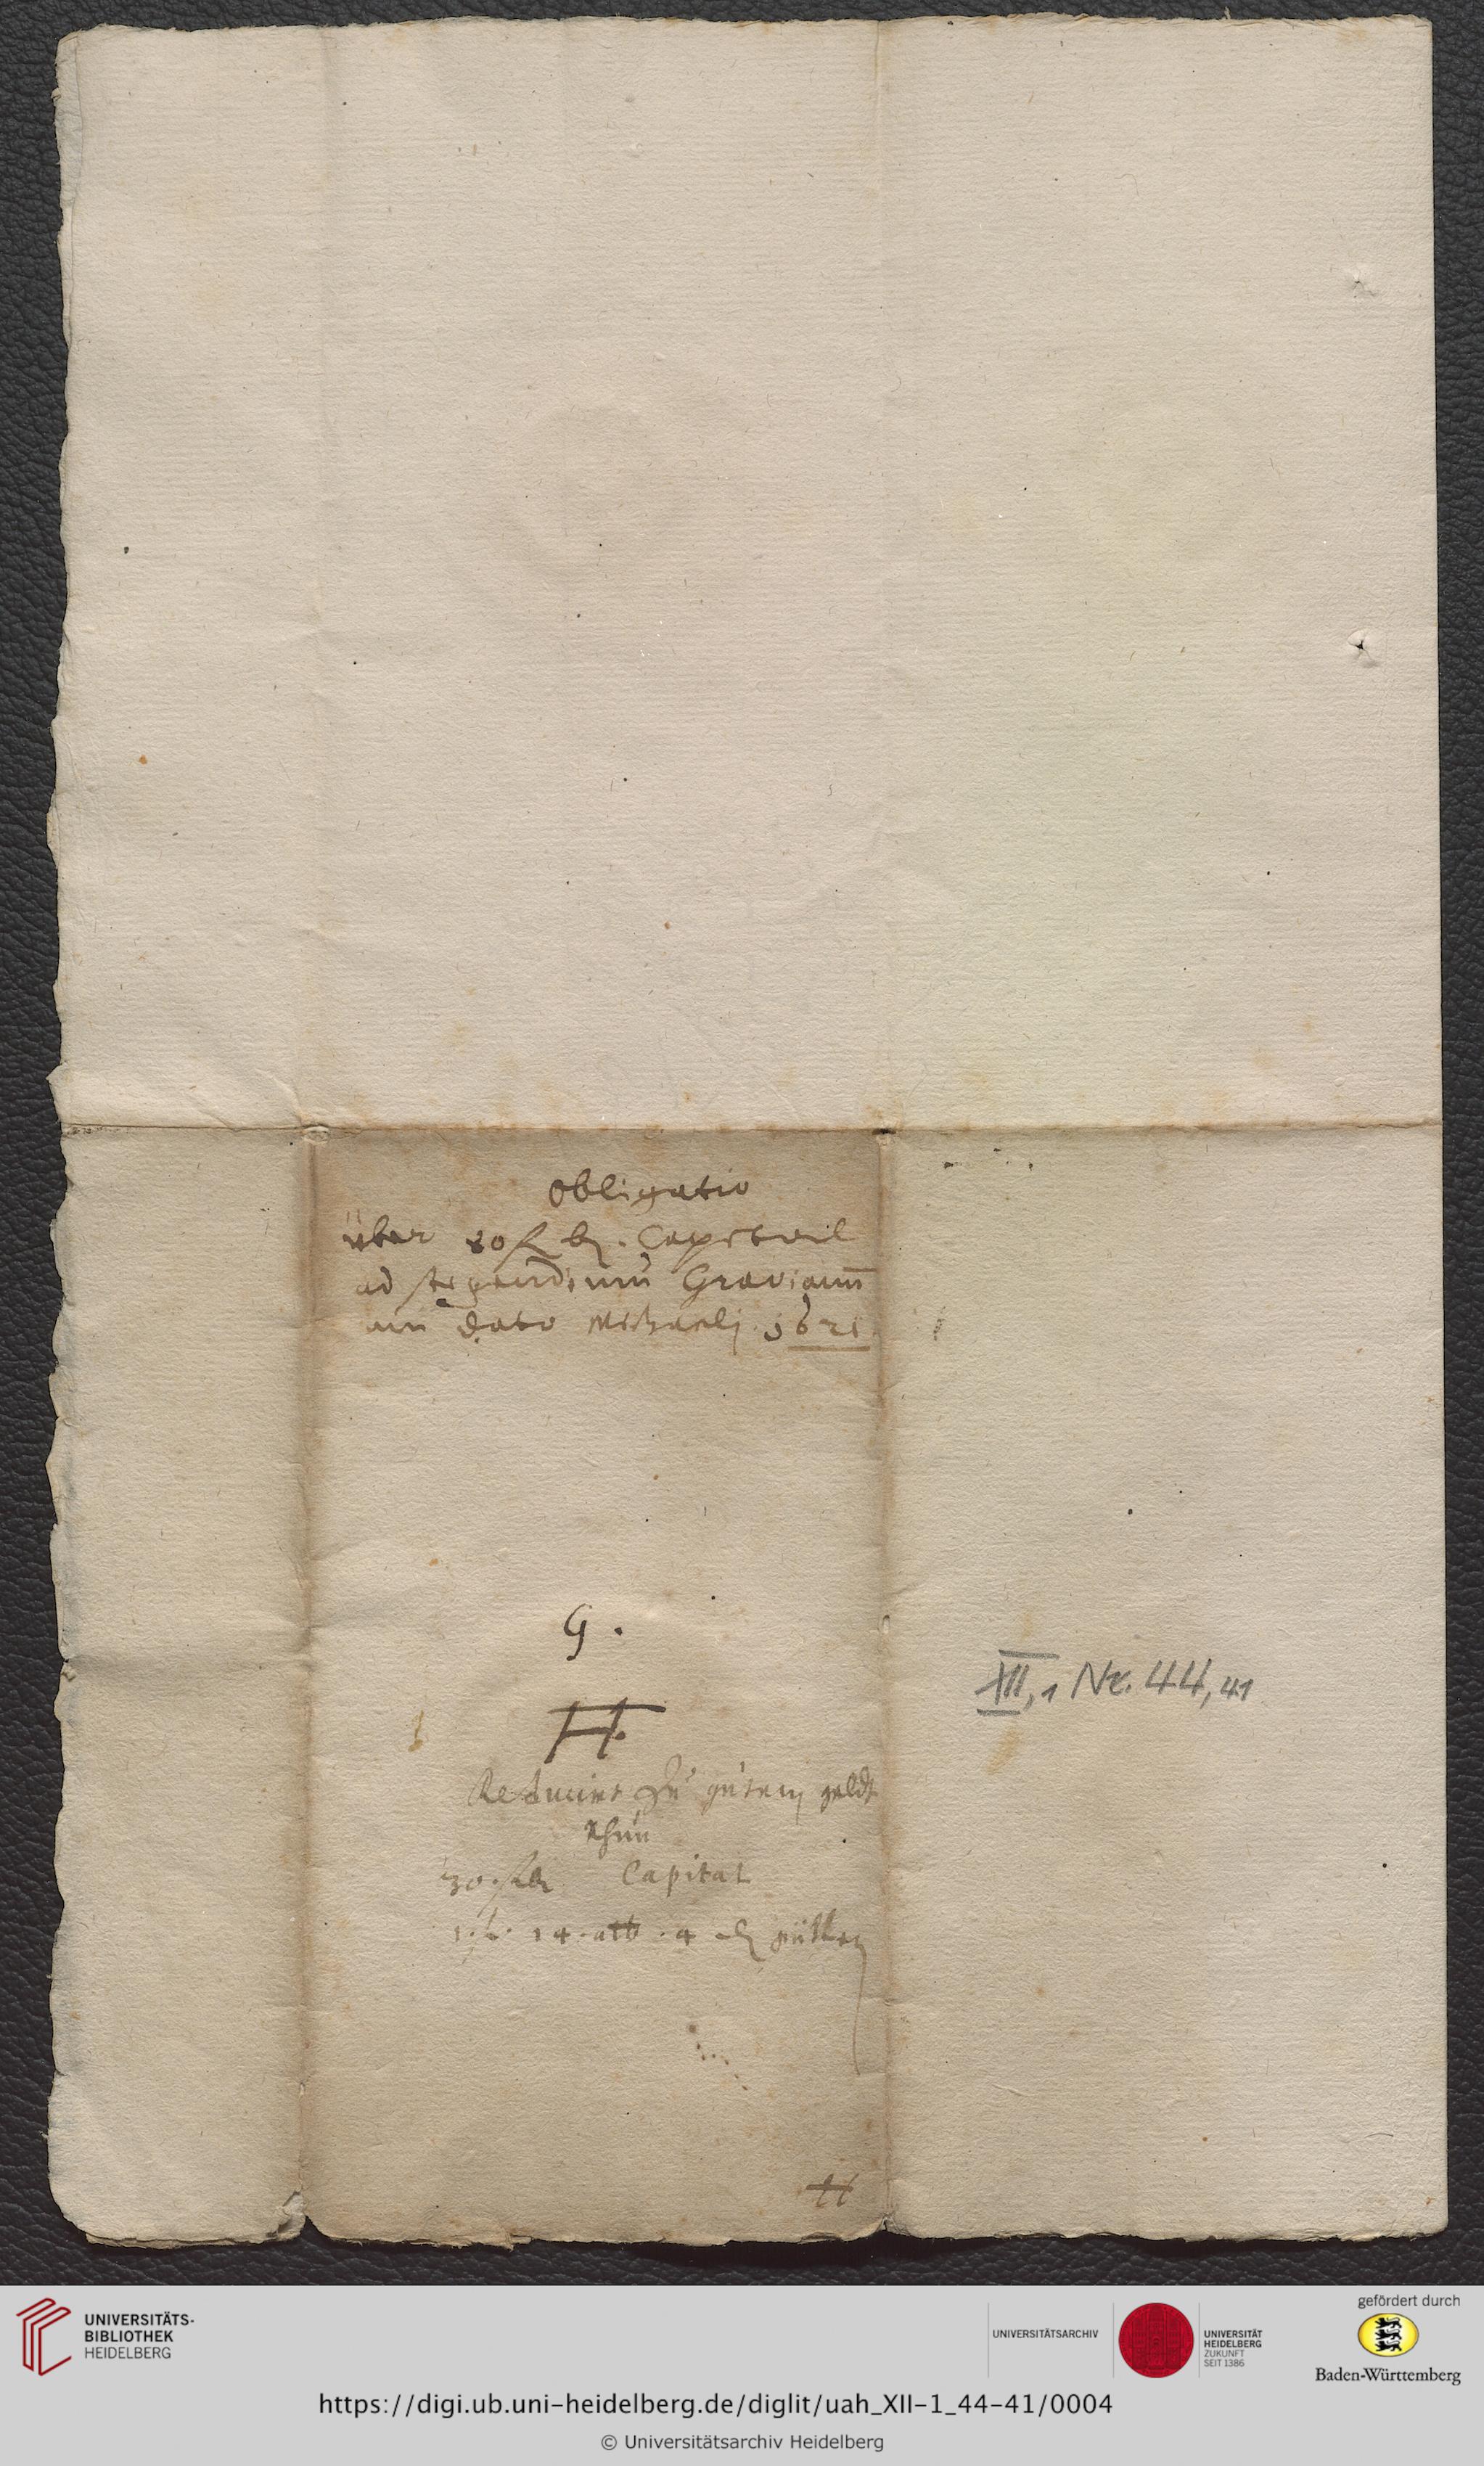 Obligatio
über 80 fl Capital
ad stipendium
dato Michaelj 1621
G.
H.
Reducirt zu gutem geldt
thun
30. fl Capital
1. fl. 14. alb. 4 gülten
XII,1 Nr. 44,41
UNIVERSITÄTS-
BIBLIOTHEK
HEIDELBERG
UNIVERSITÄTSARCHIV
UNIVERSITÄT
HEIDELBERG
ZUKUNFT
SEIT 1386
gefördert durch
Baden-Württemberg
https://digi.ub.uni-heidelberg.de/diglit/uah_XII-1_44-41/0004
© Universitätsarchiv Heidelberg